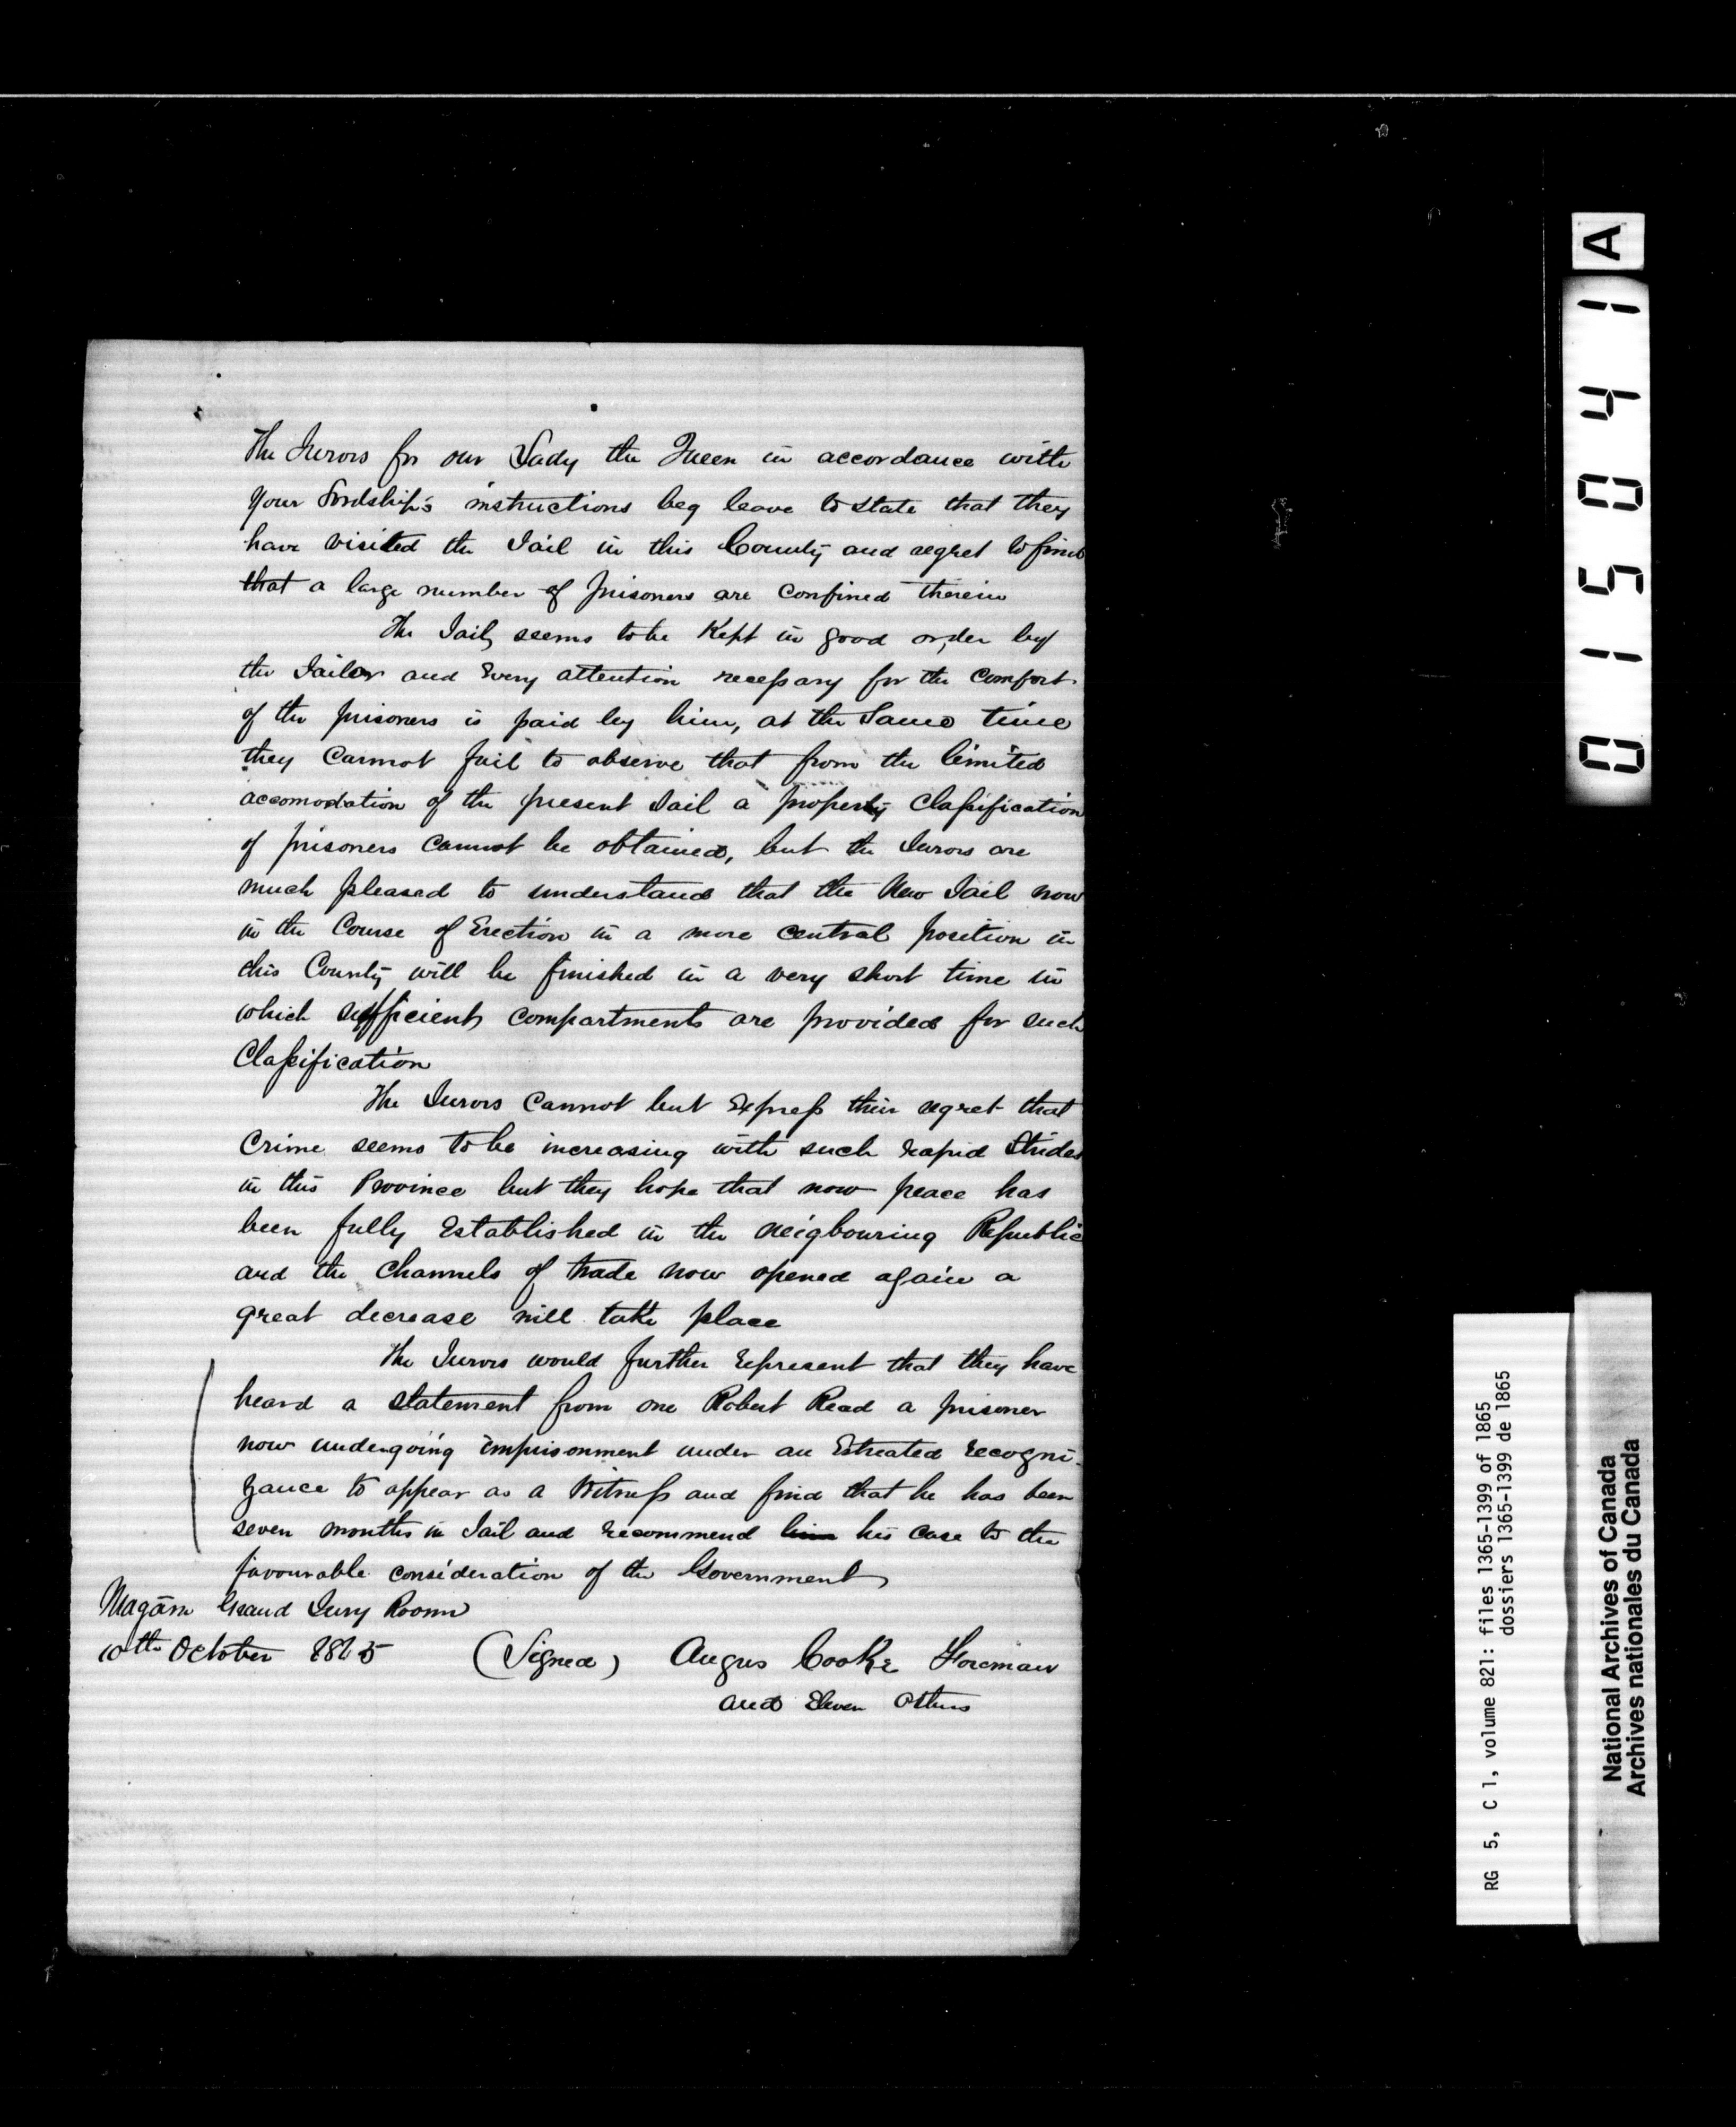 The Jurors for our Lady the Queen in accordance with
your Lordship's instructions beg leave to state that they
have visited the Jail in this County and regret to find
that a large number of prisoners are confined therein
The Jail seems to be Kept in good order by
the Jailor and Every attention necessary for the Comfort
of the prisoners is paid by him, at the Same time
they Cannot fail to observe that from the limited
accomodation of the present Jail a properly Classification
of prisoners Cannot be obtained, but the Jurors are
much pleased to understand that the New Jail now
in the Course of Erection in a more central position in
this County will be finished in a very short time in
which sufficient compartments are provided for such
Classification
The Jurors Cannot but Express their regret that
Crime seems to be increasing with such rapid Strides
in this Province but they hope that now peace has
been fully Established in the neigbouring Republic
and the Channels of trade now opened again a
great decrease will take place
The Jurors would further represent that they have
heard a statement from one Robert Read a prisoner
now undergoing imprisonment under an Estreated recogni-
zance to appear as a Witness and find that he has been
seven months in Jail and recommend him his case to the
favourable consideration of the Government
Niagara Grand Jury Room
10th October 1865 (Signed) Angus Cooke Foreman
and Eleven Others
A
015041
RG 5, C 1, volume 821: files 1365-1399 of 1865
dossiers 1365-1399 de 1865
National Archives of Canada
Archives nationales du Canada